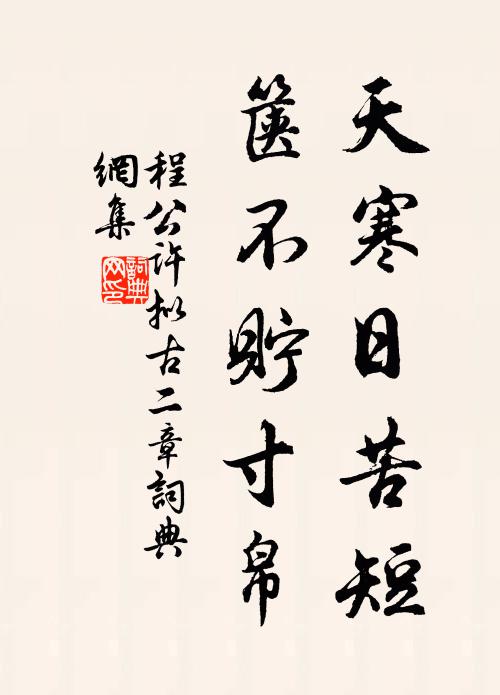 天寒日苦短
篋不貯寸帛
程公許拟古二章詞典
網集
詞典
网印